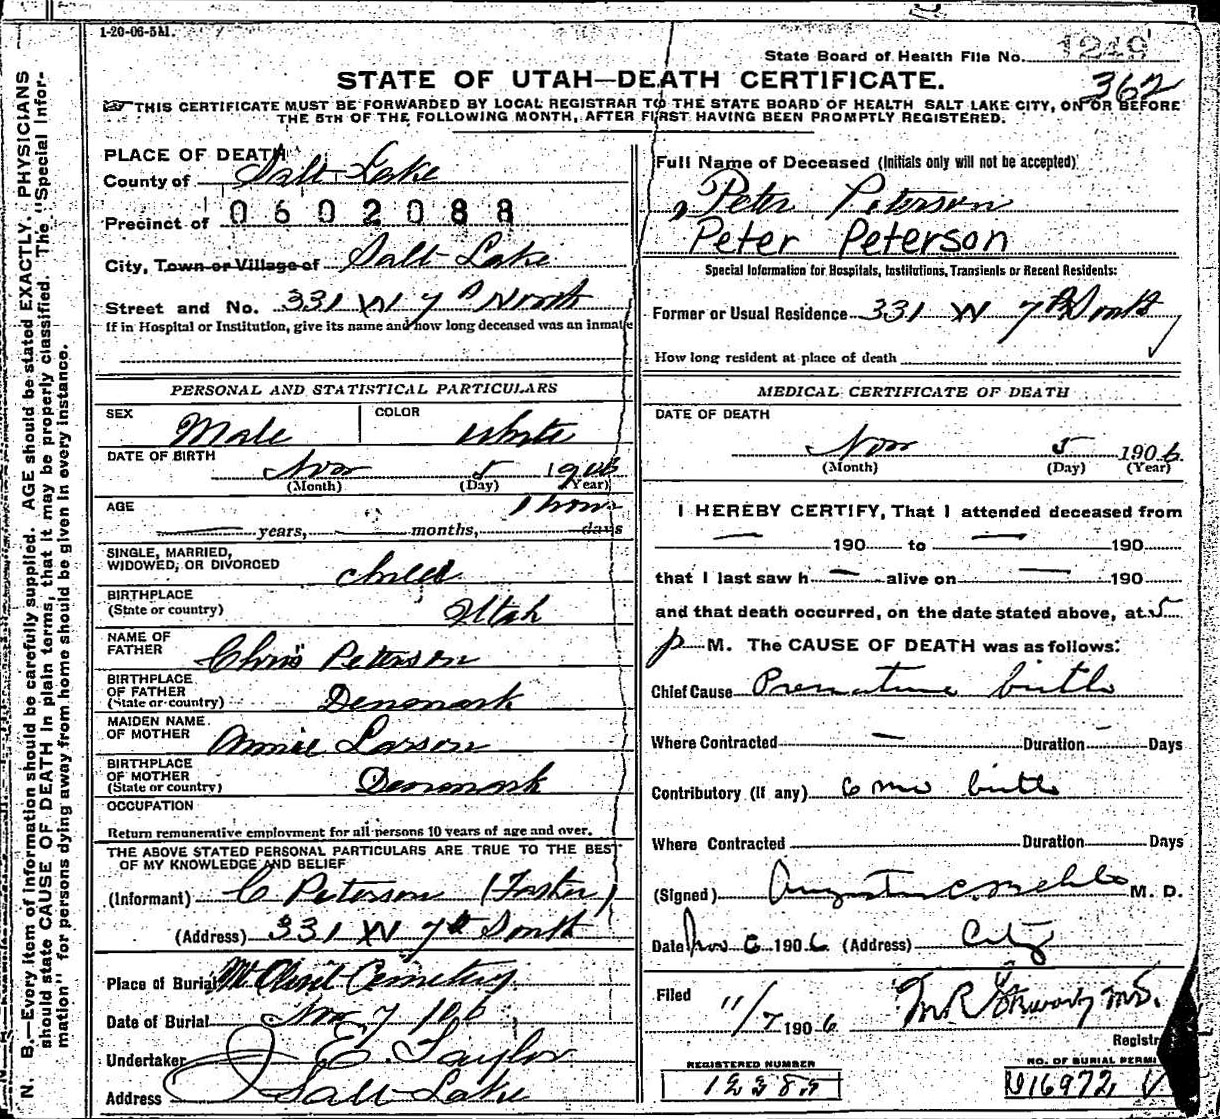 1-20-06-5M.
State Board of Health File No. 1249
362
STATE OF UTAH—DEATH CERTIFICATE.
THIS CERTIFICATE MUST BE FORWARDED BY LOCAL REGISTRAR TO THE STATE BOARD OF HEALTH SALT LAKE CITY, ON OR BEFORE
THE 5TH OF THE FOLLOWING MONTH, AFTER FIRST HAVING BEEN PROMPTLY REGISTERED.
N. B.—Every item of information should be carefully supplied. AGE should be stated EXACTLY. PHYSICIANS
should state CAUSE OF DEATH in plain terms, that it may be properly classified. The "Special Infor-
mation" for persons dying away from home should be given in every instance.
PLACE OF DEATH
County of Salt Lake
Precinct of 0602088
City, Town or Village of Salt Lake
Street and No. 331 W 7th
If in Hospital or Institution, give its name and how long deceased was an inmate
PERSONAL AND STATISTICAL PARTICULARS
SEX Male COLOR White
DATE OF BIRTH Nov 5 1906
(Month) (Day) (Year)
AGE 1 hour
years, months, days
SINGLE, MARRIED,
WIDOWED, OR DIVORCED child
BIRTHPLACE
(State or country) Utah
NAME OF
FATHER Chris Peterson
BIRTHPLACE
OF FATHER
(State or country) Denmark
MAIDEN NAME
OF MOTHER Annie Larson
BIRTHPLACE
OF MOTHER
(State or country) Denmark
OCCUPATION
Return remunerative employment for all persons 10 years of age and over.
THE ABOVE STATED PERSONAL PARTICULARS ARE TRUE TO THE BEST
OF MY KNOWLEDGE AND BELIEF
(Informant) C Peterson (Father)
(Address) 331 W 7th South
Place of Burial Mt Olivet Cemetery
Date of Burial Nov 7 1906
Undertaker J E Taylor
Address Salt Lake
Full Name of Deceased (Initials only will not be accepted)
Peter Peterson
Peter Peterson
Special Information for Hospitals, Institutions, Transients or Recent Residents:
Former or Usual Residence 331 W 7th South
How long resident at place of death
MEDICAL CERTIFICATE OF DEATH
DATE OF DEATH
Nov 5 1906
(Month) (Day) (Year)
I HEREBY CERTIFY, That I attended deceased from
— 190 to — 190
that I last saw h — alive on — 190
and that death occurred, on the date stated above, at 5
p M. The CAUSE OF DEATH was as follows:
Chief Cause Premature birth
Where Contracted — Duration — Days
Contributory (If any) 6 mo birth
Where Contracted Duration Days
(Signed) M. D.
Date Nov 6 1906 (Address) City
Filed 11/7 1906 M.D.
Registrar
REGISTERED NUMBER
NO. OF BURIAL PERMIT
U16972